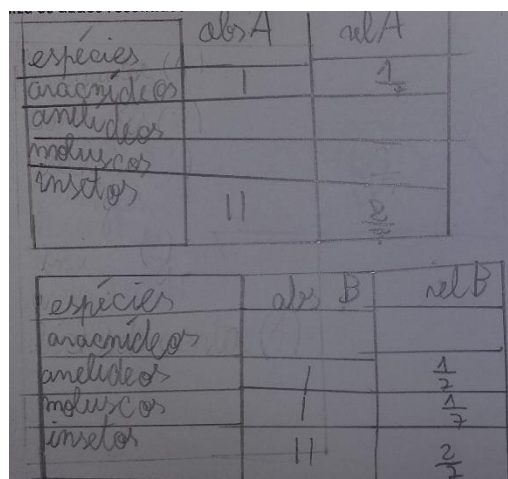 espécies absA relA
aracnídeos | 1/7
anelídeos
moluscos
insetos || 2/7
espécies abs B relB
aracnídeos
anelídeos | 1/7
moluscos | 1/7
insetos || 2/7